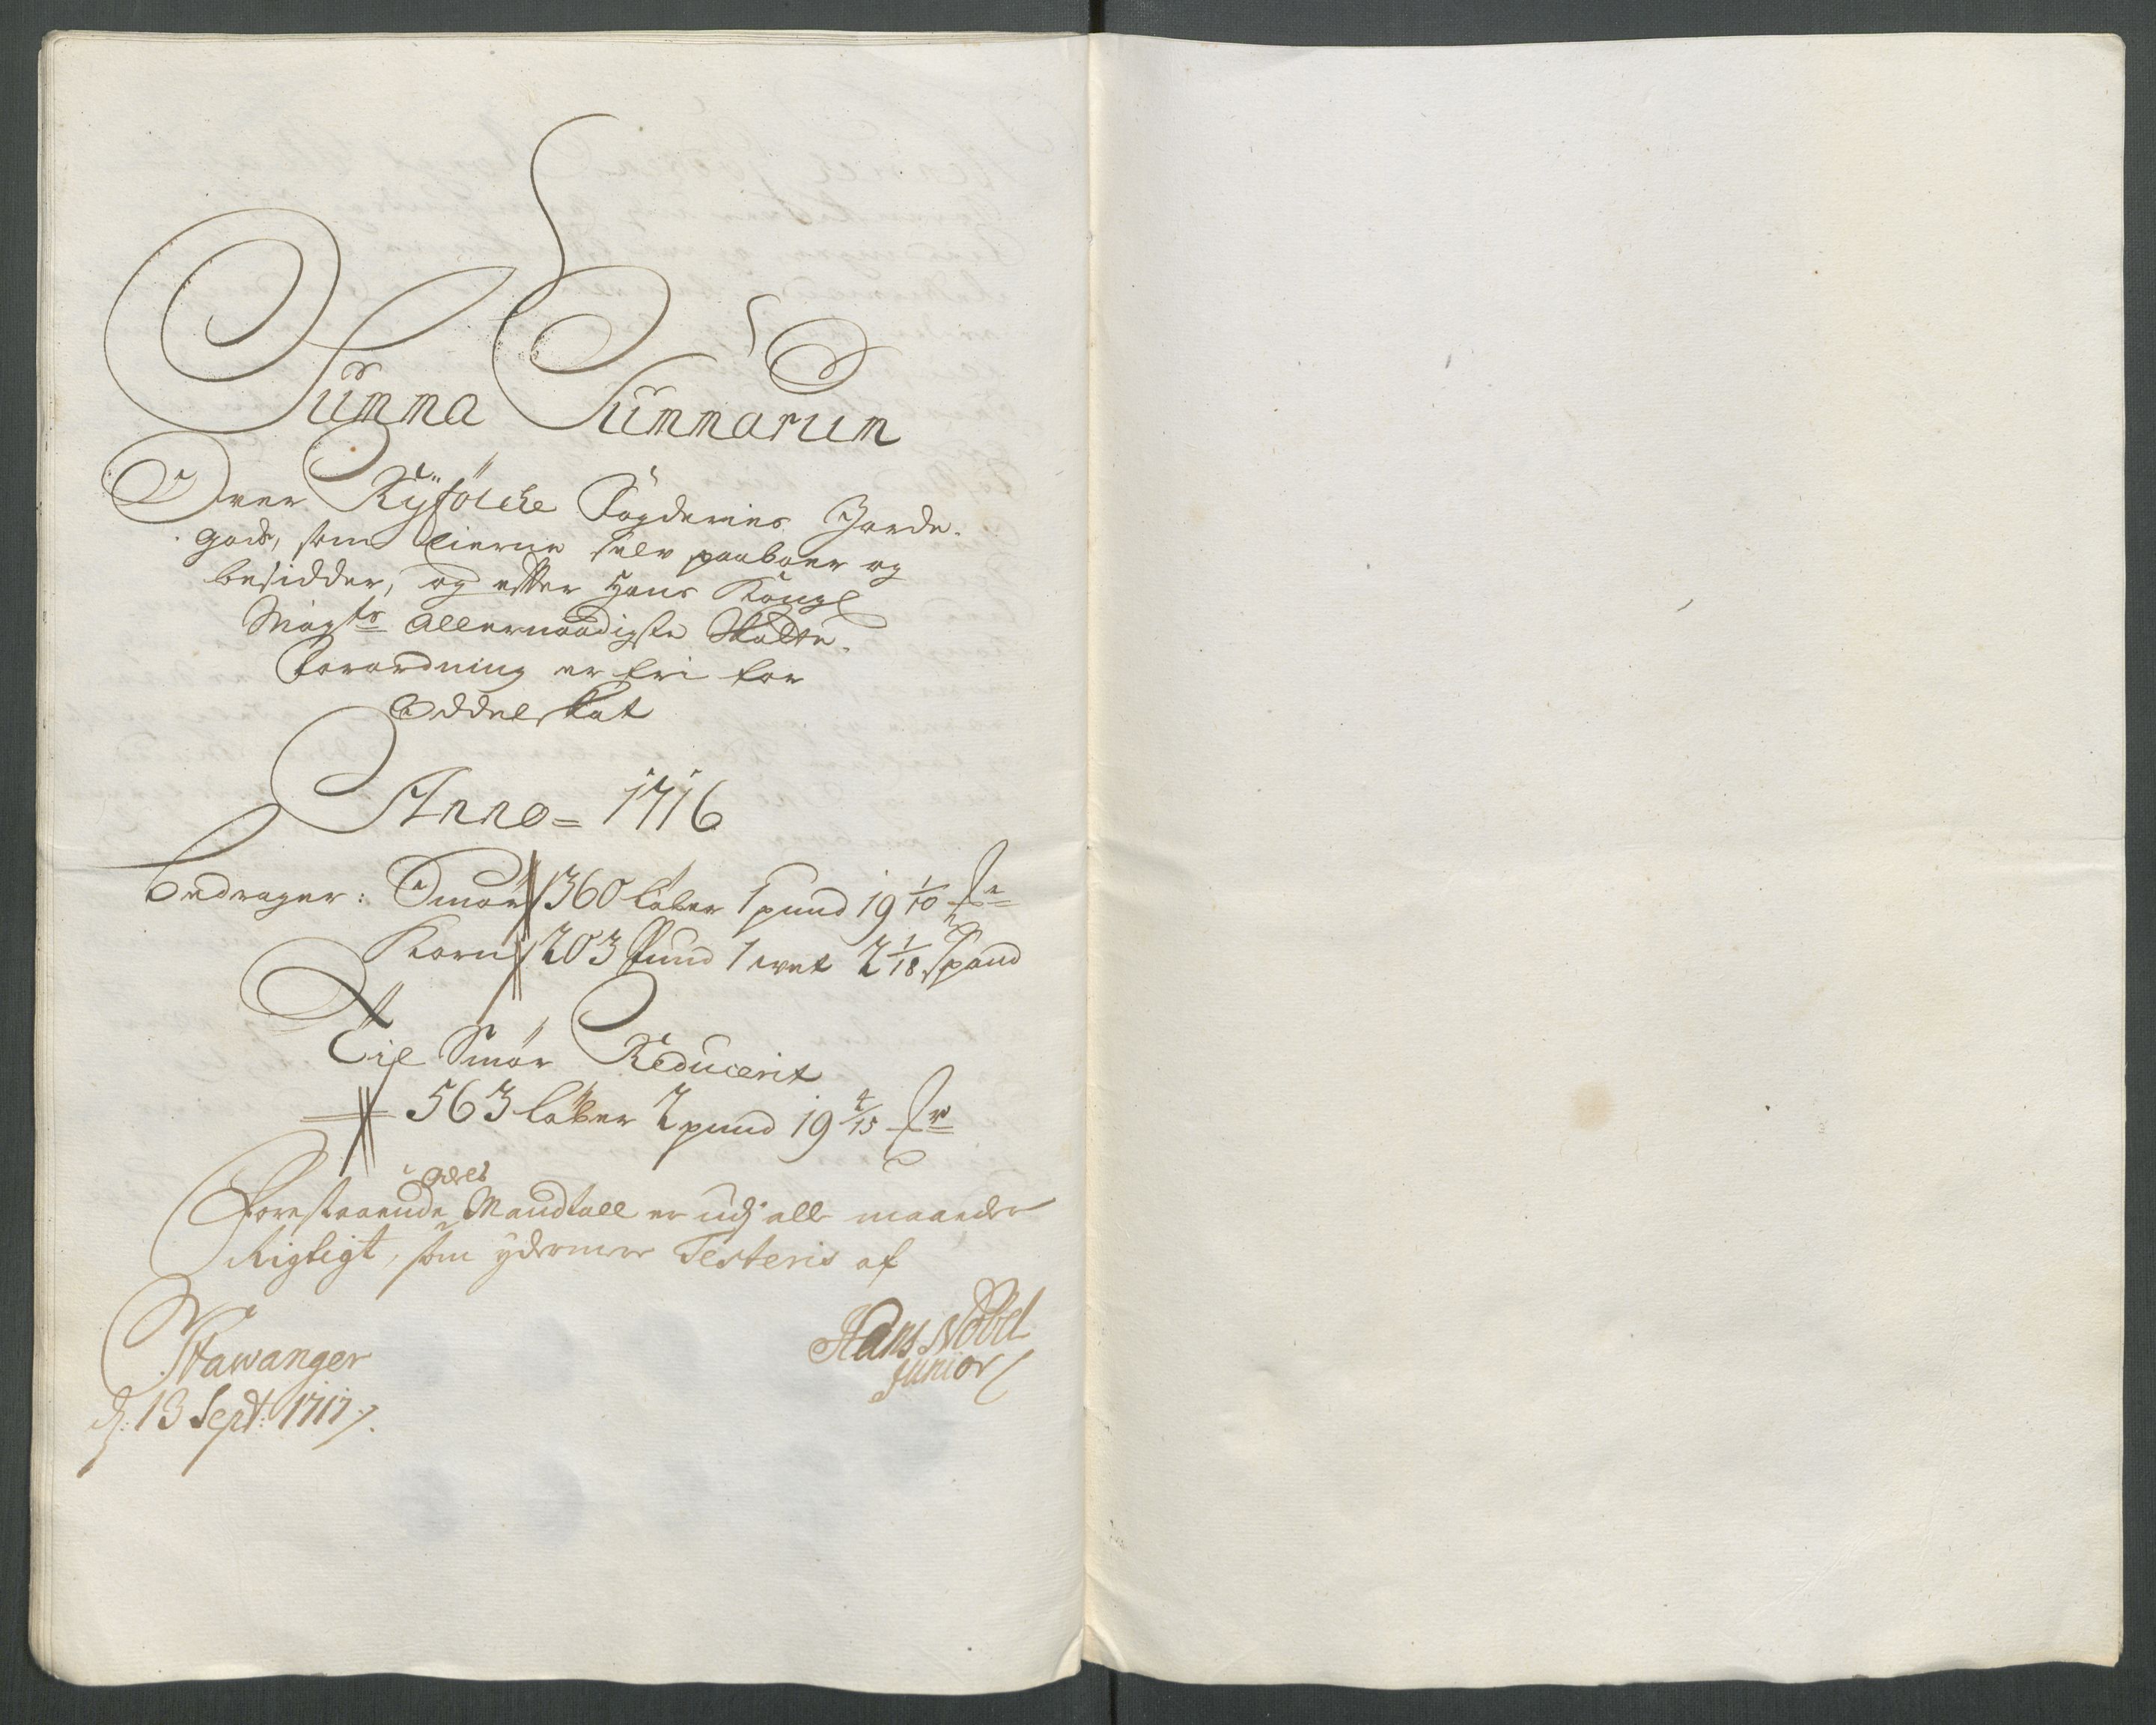 Summa Summarum
Over Ryfölcke Fogderies Jorde-
gods, som Eierne selv paaboer og
besidder, og efter Hans Kongl
Mayts Allernaadigste Skatte-
Forordning er fri for
Oddelskat
Anno= 1716
Bedrager: Smør 360 løber 1 pund 19 1/10 
Korn 203 Pund 1 wet 2 1/18 Spand
Til Smør Reducerit
563 løber 2 pund 19 4/15 
Forestaaende Mandtall er udj alle maader
Rigtigt, som ydermere Testeris af
Stawanger
d: 13 Sept: 1717.
Hans Nobel
Junior